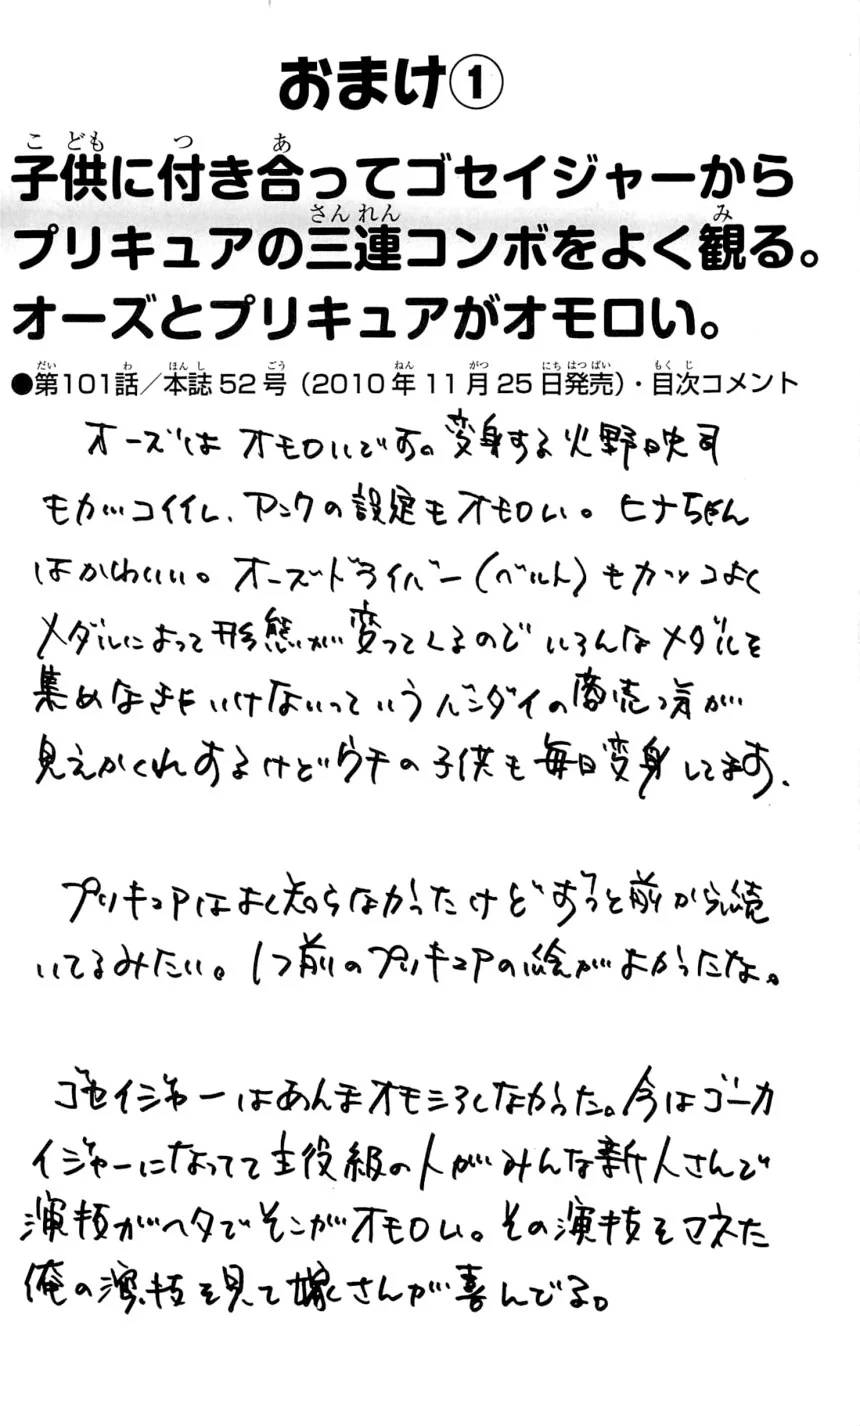 おまけ①
子供に付き合ってゴセイジャーから
プリキュアの三連コンボをよく観る。
オーズとプリキュアがオモロい。
●第101話／本誌52号（2010年11月25日発売）・目次コメント
オーズは オモロいです。変身する火野映司
もカッコイイし、アンクの設定もオモロい。ヒナちゃん
はかわいい。オーズドライバー(ベルト)もカッコよく
メダルによって形態が変ってくるのでいろんなメダルを
集めなきゃいけないっていうバンダイの商売っ気が
見えかくれするけどウチの子供も毎日変身してます。
プリキュアはよく知らなかったけどずっと前から続
いてるみたい。1つ前のプリキュアの絵がよかったな。
ゴセイジャーはあんまオモシろくなかった。今はゴーカ
イジャーになってて主役級の人がみんな新人さんで
演技がヘタでそこがオモロい。その演技をマネた
俺の演技を見て嫁さんが喜んでる。